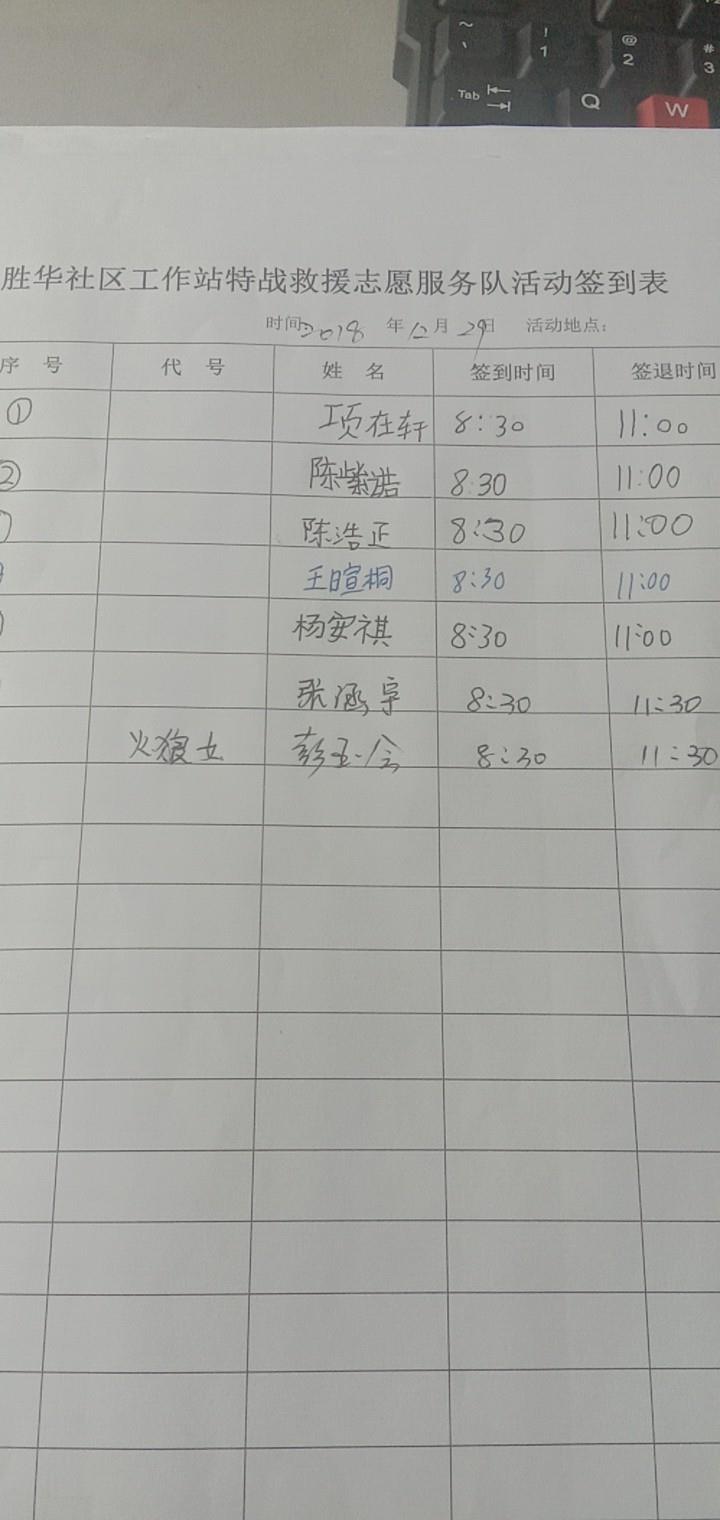 ~ ! @ #
、 1 2 3
Tab Q W
胜华社区工作站特战救援志愿服务队活动签到表
时间:2018 年 12 月 29日 活动地点:
序 号 代 号 姓 名 签到时间 签退时间
① 项在轩 8:30 11:00
② 陈紫诺 8:30 11:00
陈浩正 8:30 11:00
王暄桐 8:30 11:00
杨安祺 8:30 11:00
张涵宇 8:30 11:30
火狼女 彭玉会 8:30 11:30